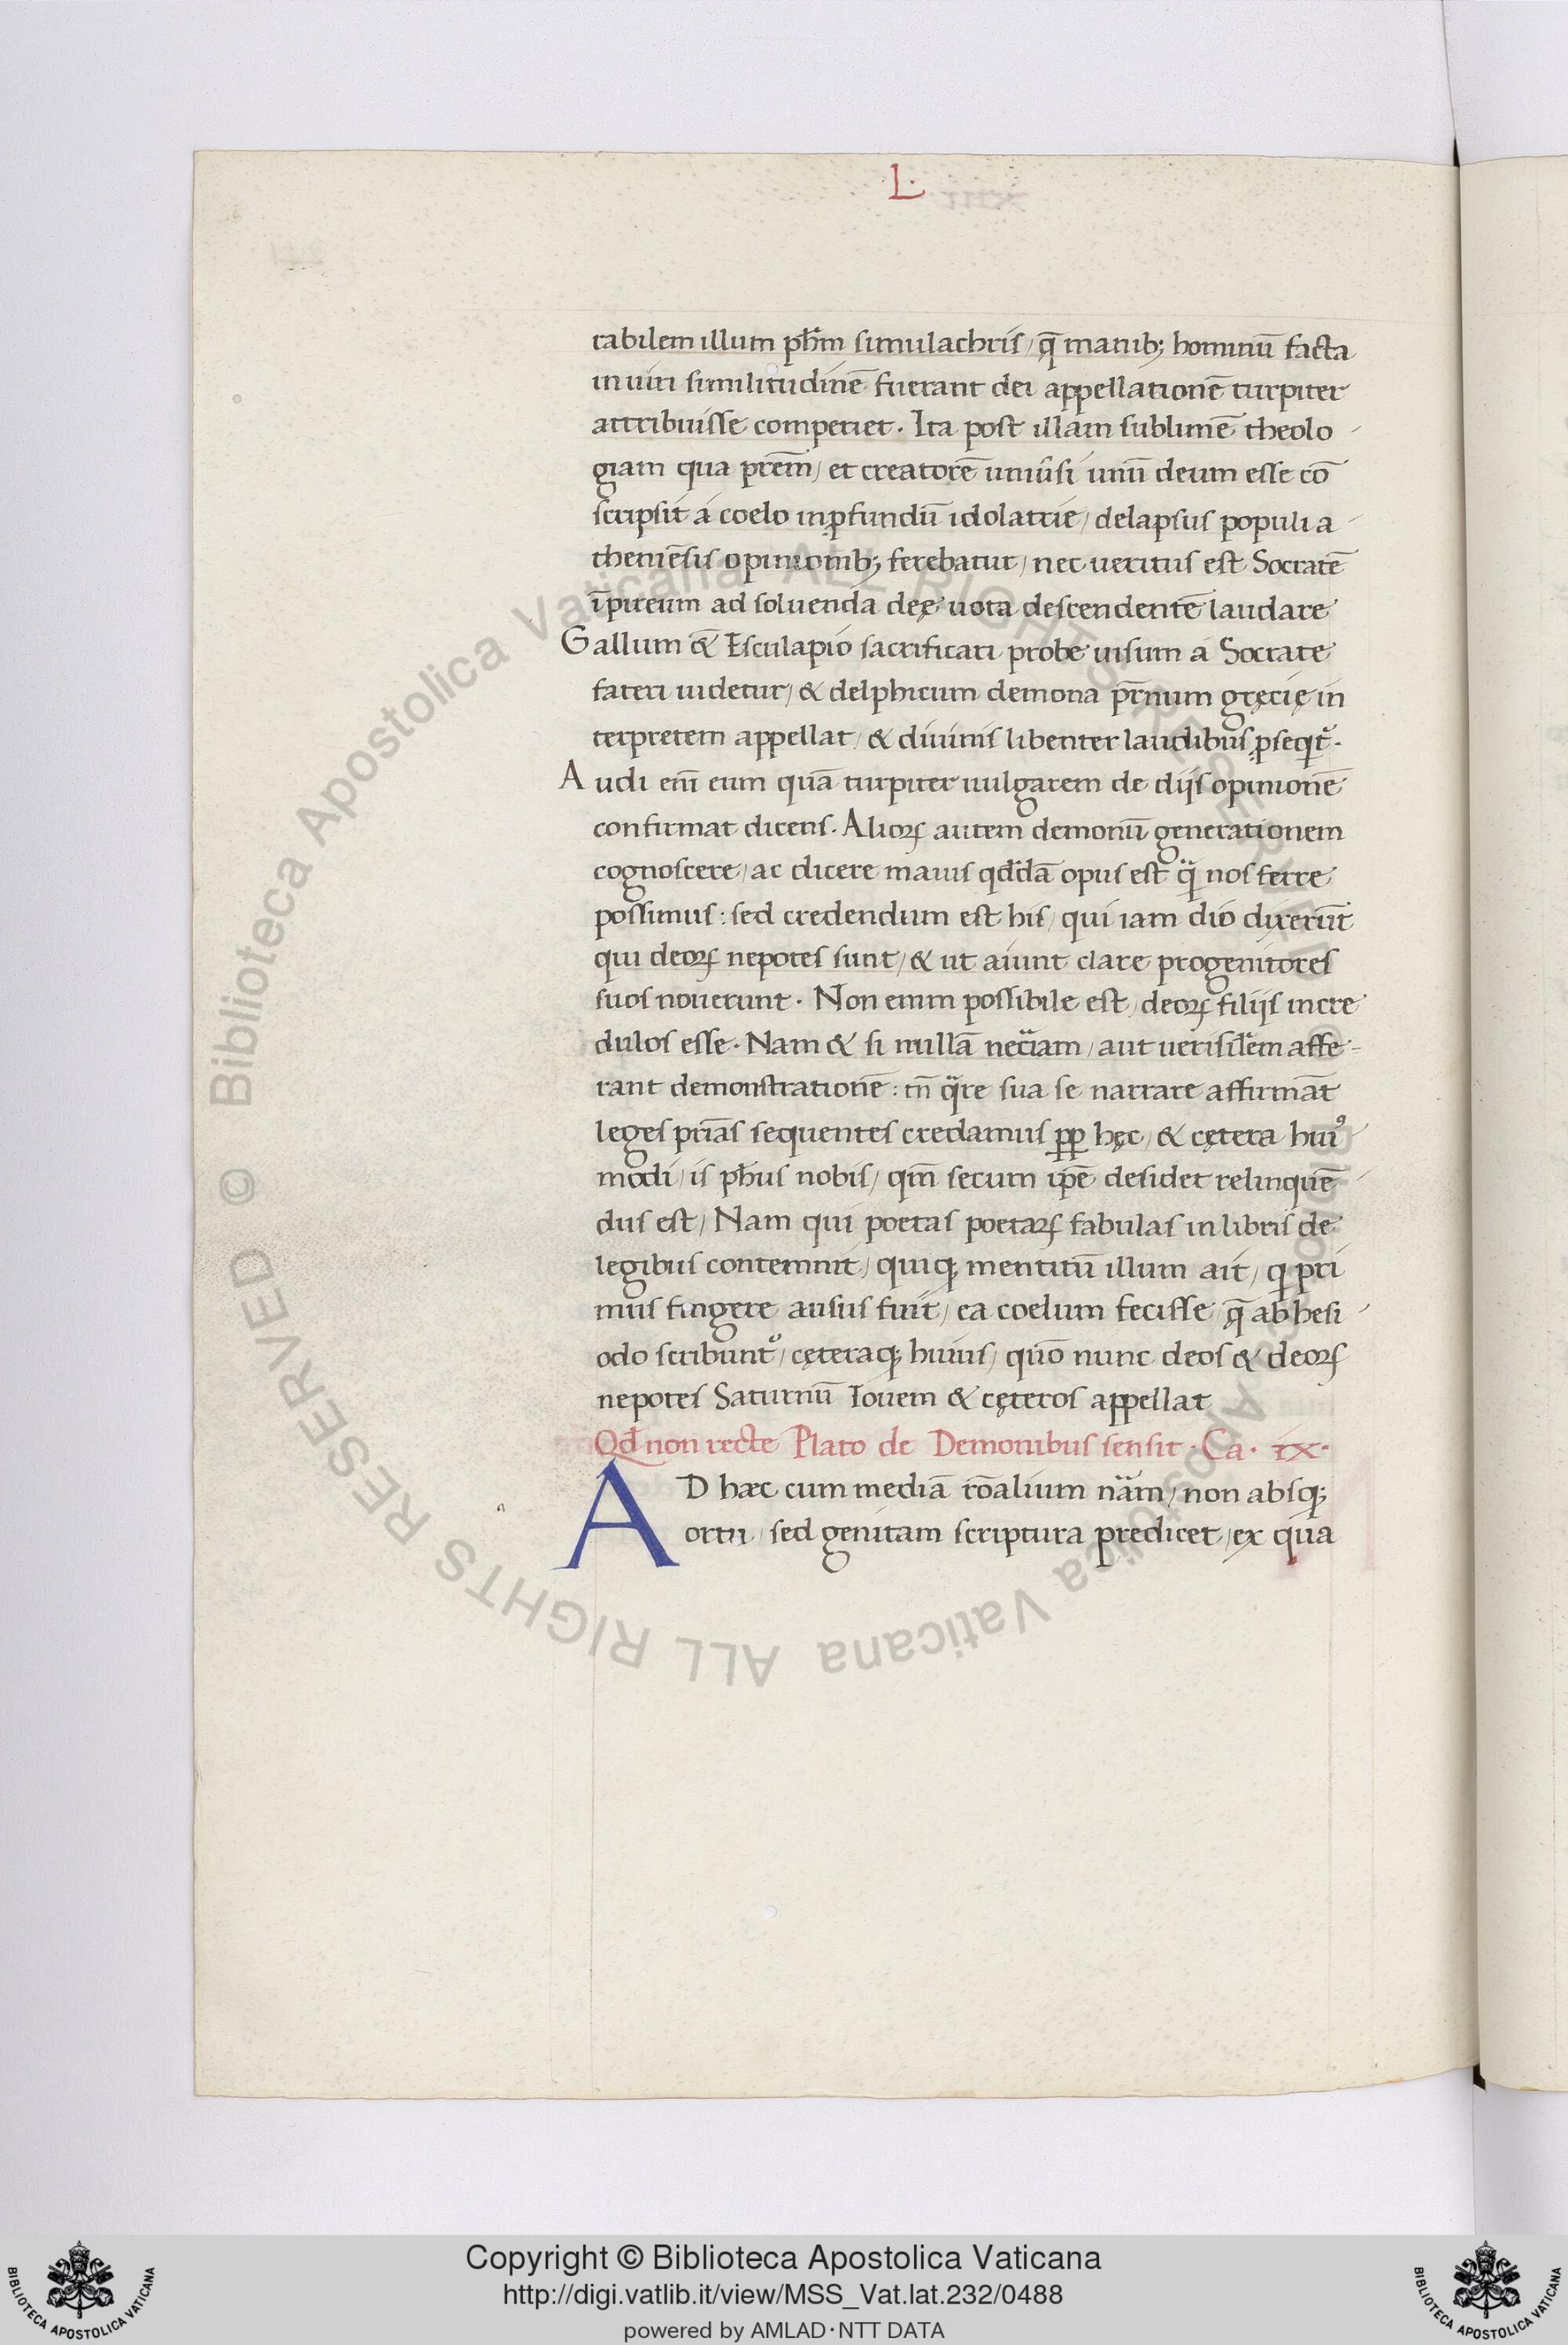 L.
rabilem illum ph̄m simulachris / q̄ manib; hominū facta
in uiri similitudinē fuerant dei appellationē turpiter
attribuisse comperiet. Ita post illam sublimē theolo
giam qua prēm / et creatorē uniūsi unū deum esse cō
scripsit á coelo in ꝓfundū idolatrie / delapsus populi a
theniēsis opinionib; ferebatur / nec ueritus est Socratē
ī pireum ad soluenda deę uota descendentē laudare
Gallum & Esculapio sacrificari probe uisum á Socrate
fateri uidetur / & delphicum demona pr̄num gręcię in
terpretem appellat / & diuinis libenter laudibus ꝓseqt᷑.
Audi em̄ eum quā turpiter uulgarem de diis opinionē
confirmat dicens. Alioꝝ autem demonū generationem
cognoscere / ac dicere maius qd̄dā opus est q̄ nos ferre
possimus: sed credendum est his / qui iam dio dixerūt
qui deoꝝ nepotes sunt / & ut aiunt clare progenitores
suos nouerunt. Non enim possibile est / deoꝝ filijs incre
dulos esse. Nam & si nullā nec̄iam / aut uerisil̄em affe-
rant demonstrationē: tn̄ q̄re sua se narrare affirmāt
leges pr̄ias sequentes credamus ꝓp hęc / & cętera huiꝰ
modi / is ph̄us nobis / qm̄ secum ip̄e desidet relinquē
dus est / Nam qui poetas poetaꝝ fabulas in libris de
legibus contemnit / quiqꝫ mentitū illum ait / q pri
mus fingere ausus fuit / ea coelum fecisse q̄ ab hesi
odo scribunt᷑ / cęteraqꝫ huius / quō nunc deos & deoꝝ
nepotes Saturnū Iouem & cęteros appellat
Qd̄ non recte Plato de Demonibus sensit. Ca. ix.
AD hæc cum mediā rōalium nām / non absqꝫ
ortu / sed genitam scriptura predicet / ex qua
© Biblioteca Apostolica Vaticana ALL RIGHTS RESERVED © Biblioteca Apostolica Vaticana ALL RIGHTS RESERVED
Copyright © Biblioteca Apostolica Vaticana
http://digi.vatlib.it/view/MSS_Vat.lat.232/0488
powered by AMLAD·NTT DATA
BIBLIOTECA APOSTOLICA VATICANA
BIBLIOTECA APOSTOLICA VATICANA